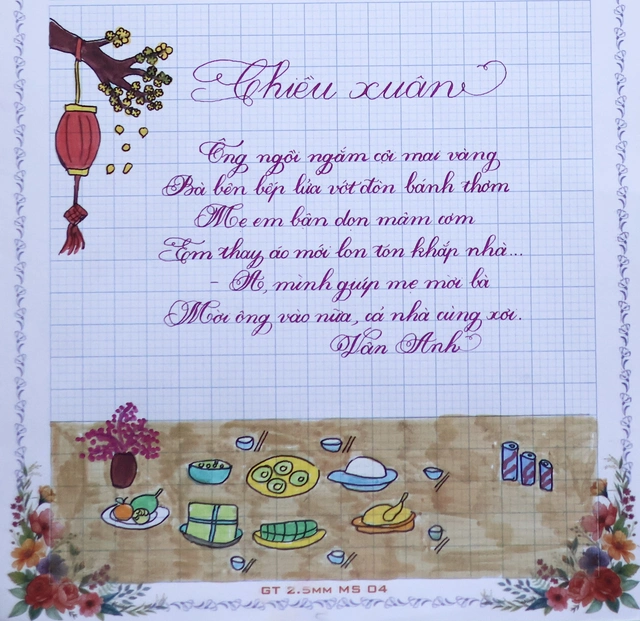 Chiều xuân
Ông ngồi ngắm cội mai vàng
Bà bên bếp lửa vớt đòn bánh thơm
Mẹ em bận dọn mâm cơm
Em thay áo mới lon tón khắp nhà...
- A, mình giúp mẹ mời bà
Mời ông vào nữa, cả nhà cùng xơi.
Vân Anh
GT 2.5MM MS 04